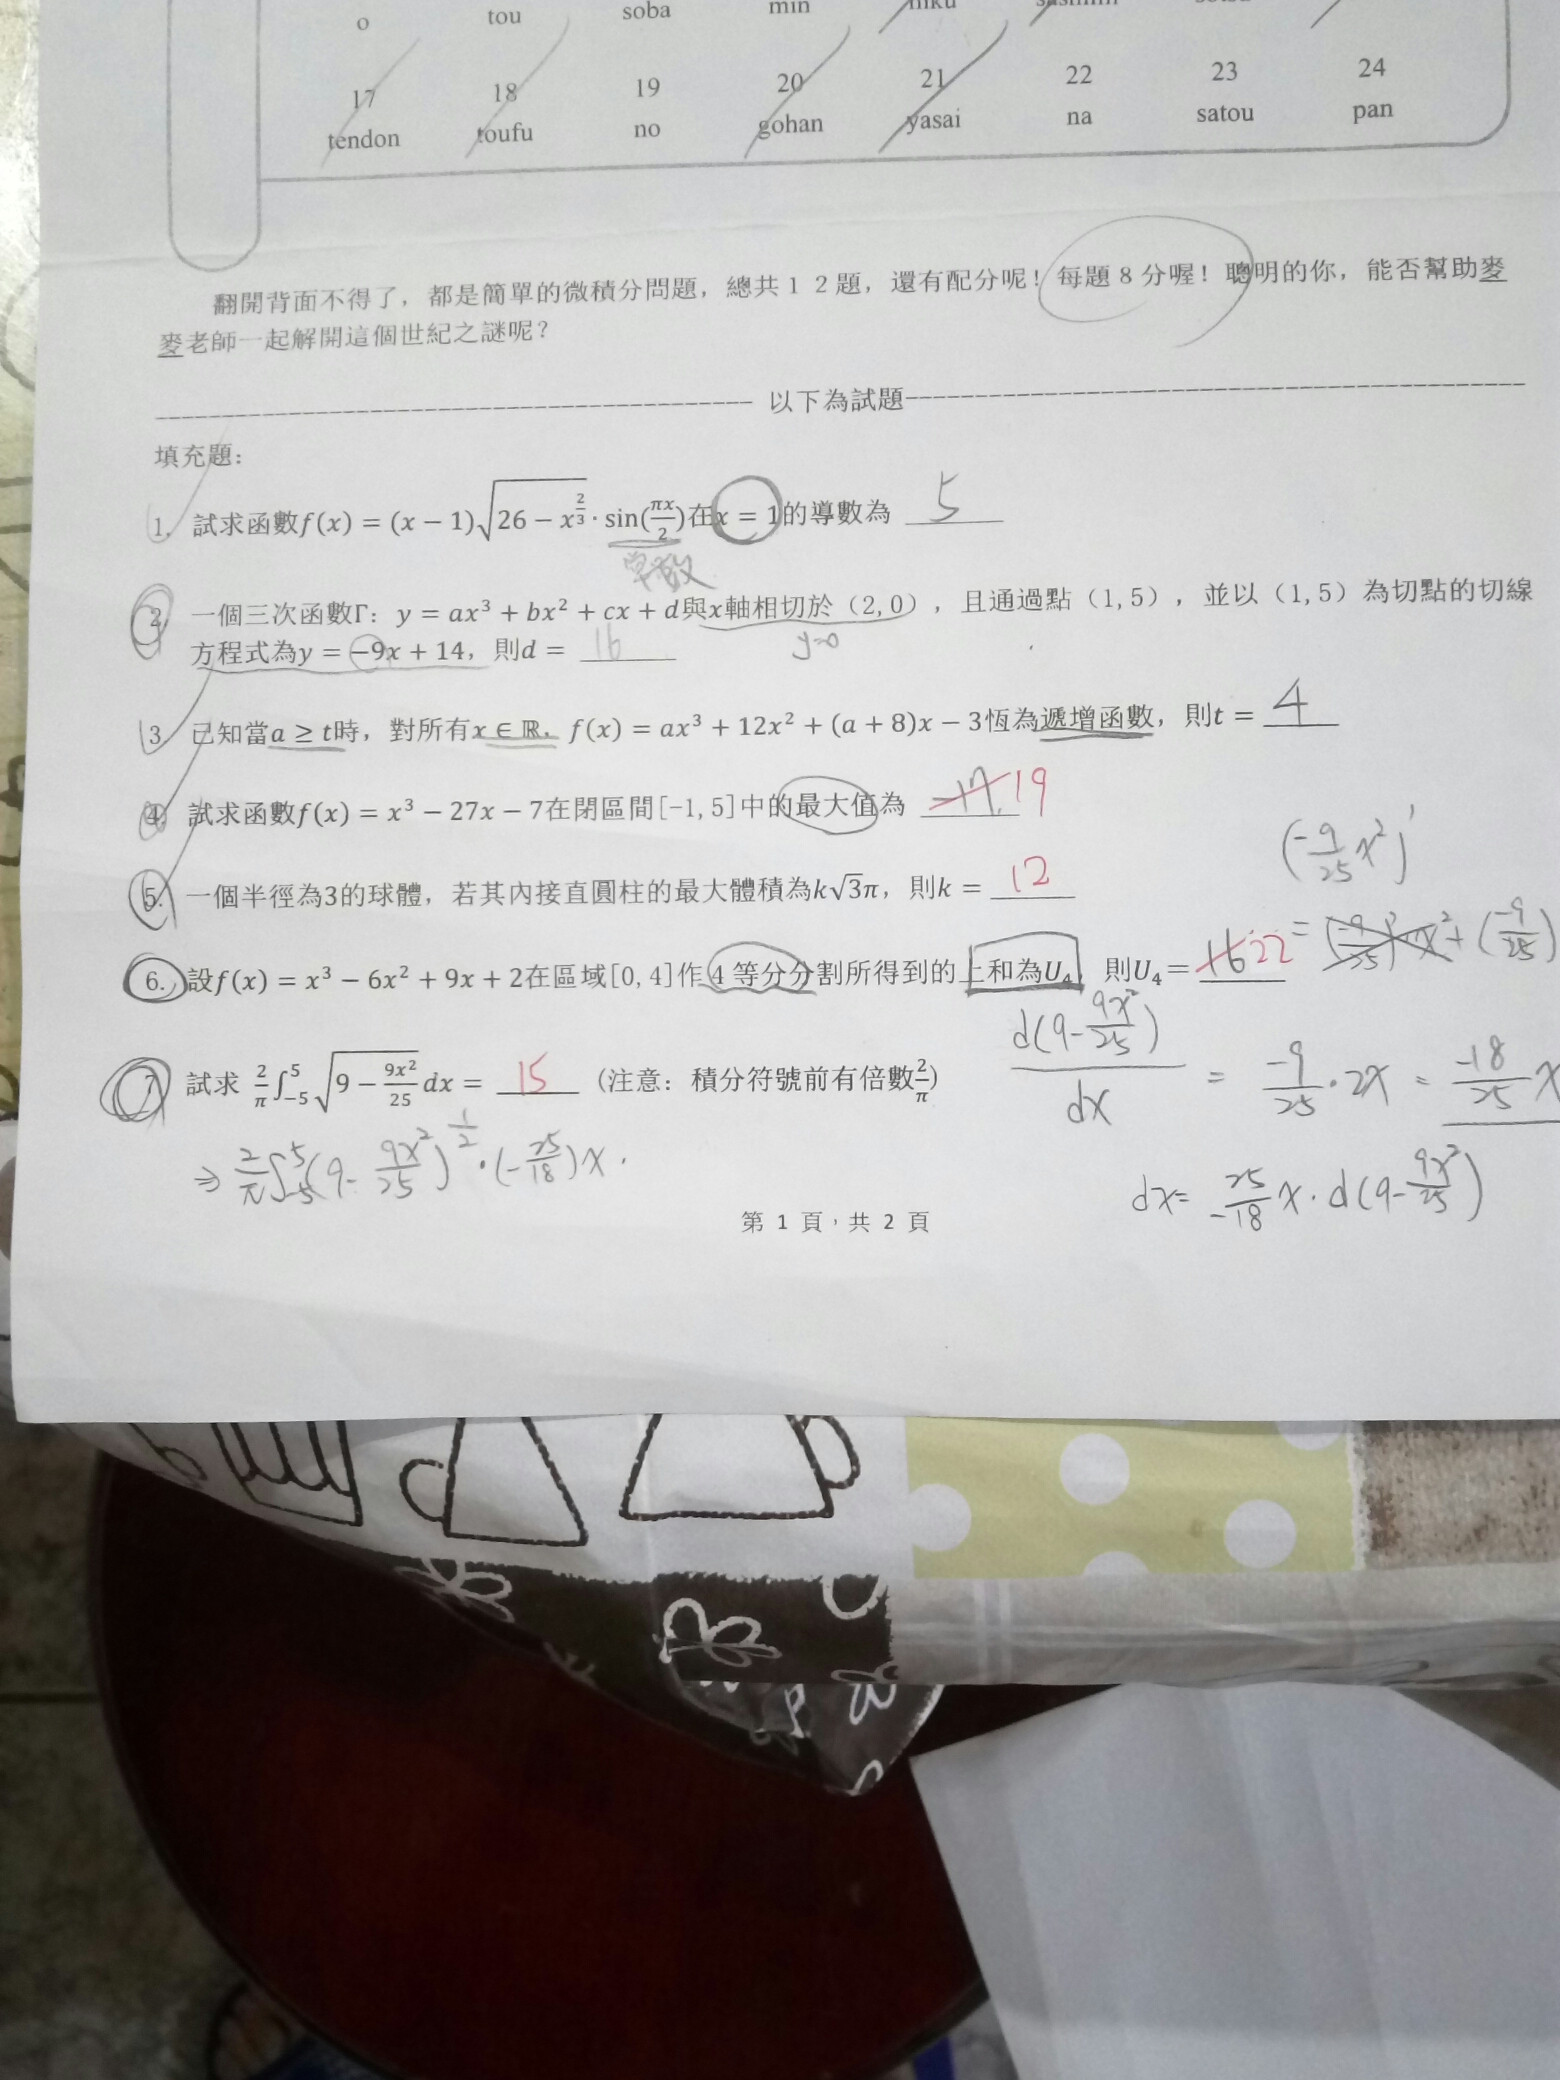 o tou soba min niku sashimi
17 18 19 20 21 22 23 24
tendon toufu no gohan yasai na satou pan
翻開背面不得了，都是簡單的微積分問題，總共12題，還有配分呢！每題8分喔！聰明的你，能否幫助麥
麥老師一起解開這個世紀之謎呢？
以下為試題
填充題：
1. 試求函數f(x) = (x − 1)√(26 − x^(2/3)) · sin(πx/2)在x = 1的導數為 5
常數
2. 一個三次函數Γ：y = ax³ + bx² + cx + d與x軸相切於（2,0），且通過點（1,5），並以（1,5）為切點的切線
方程式為y = −9x + 14，則d = 16
y=0
3. 已知當a ≥ t時，對所有x ∈ ℝ，f(x) = ax³ + 12x² + (a + 8)x − 3恆為遞增函數，則t = 4
4. 試求函數f(x) = x³ − 27x − 7在閉區間[-1,5]中的最大值為 -17 19
(-9/25 x²)'
5. 一個半徑為3的球體，若其內接直圓柱的最大體積為k√3π，則k = 12
= (-9/25)' x² + (-9/25)
6. 設f(x) = x³ − 6x² + 9x + 2在區域[0,4]作4等分分割所得到的上和為U₄，則U₄ = 16 22
7. 試求 2/π ∫₋₅⁵ √(9 − 9x²/25) dx = 15 (注意：積分符號前有倍數2/π)
d(9-9x²/25)/dx = -9/25 · 2x = -18/25 x
⇒ 2/π ∫₋₅⁵ (9- 9x²/25)^(1/2) · (-25/18)x .
dx= 25/-18 x · d(9-9x²/25)
第 1 頁，共 2 頁